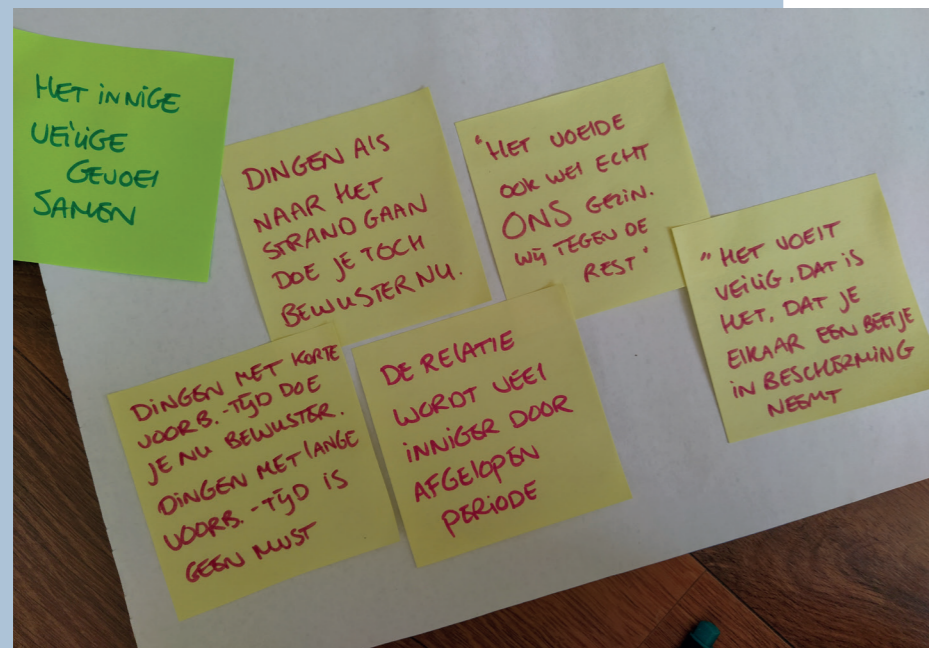 HET INNIGE
VEILIGE
GEVOEL
SAMEN
DINGEN ALS
NAAR HET
STRAND GAAN
DOE JE TOCH
BEWUSTER NU.
"HET VOELDE
OOK WEL ECHT
ONS GEZIN.
WIJ TEGEN DE
REST"
"HET VOELT
VEILIG, DAT IS
HET, DAT JE
ELKAAR EEN BEETJE
IN BESCHERMING
NEEMT
DINGEN MET KORTE
VOORB.-TIJD DOE
JE NU BEWUSTER.
DINGEN MET LANGE
VOORB.-TIJD IS
GEEN MUST
DE RELATIE
WORDT VEEL
INNIGER DOOR
AFGELOPEN
PERIODE